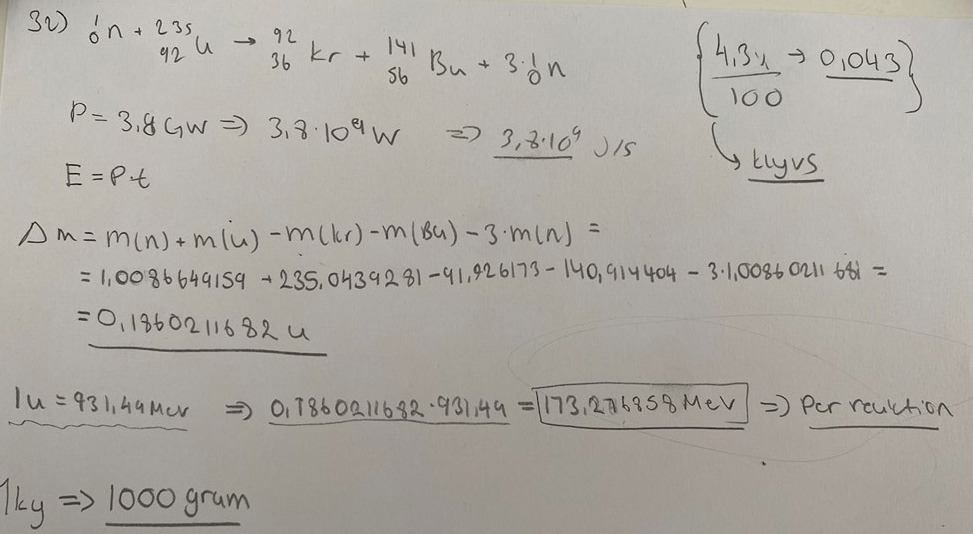 32) ¹₀n + ²³⁵₉₂U → ⁹²₃₆Kr + ¹⁴¹₅₆Bu + 3·¹₀n
{4,3% / 100 → 0,043}
↳ klyvs
P = 3,8 GW => 3,8·10⁹ W => 3,8·10⁹ J/s
E = P·t
Δm = m(n) + m(u) - m(kr) - m(Bu) - 3·m(n) =
= 1,0086649159 + 235,0439281 - 91,926173 - 140,914404 - 3·1,00860211681 =
= 0,1860211682 u
1u = 931,49 MeV => 0,1860211682·931,49 = 173,276858 MeV => Per reaktion
1kg => 1000 gram